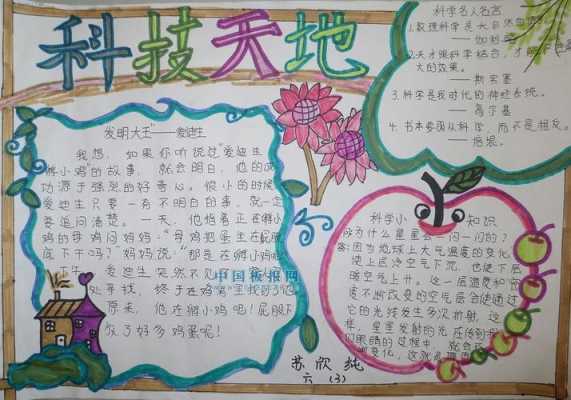 科技天地
发明大王"——爱迪生
我想,如果你听说过"爱迪生
孵小鸡"的故事,就会明白,他的成
功源于强烈的好奇心。很小的时候
爱迪生只要一有不明白的事,就一定
要追问清楚。一天,他指着正在孵小
鸡的母鸡问妈妈:"母鸡把蛋坐在屁股
底下干吗?"妈妈说:"那是在孵小鸡呢
爱迪生突然不见了
处寻找,终于在鸡窝里找到了他
原来,他在孵小鸡呢!屁股下
放了好多鸡蛋呢!
中国板报网
科学名人名言
1.数理科学是大自然
——伽利略
2.天才跟科学结合,才能
大的效果。
——斯宾塞
3.科学是我时代的神经系统。
——高尔基
4.书本要跟从科学,而不是相反。
——培根。
科学小知识
为什么星星会一闪一闪的?
答:因为地球上大气温度的变化,
使上层冷空气下沉,也使下层
暖空气上升。这一层温度和密
度不断改变的空气层会使通过
它的光线发生多次折射,这
样,星星发射的光在传到我
们眼睛的过程中,就会
变化,这就是
苏欣纯
六(3)